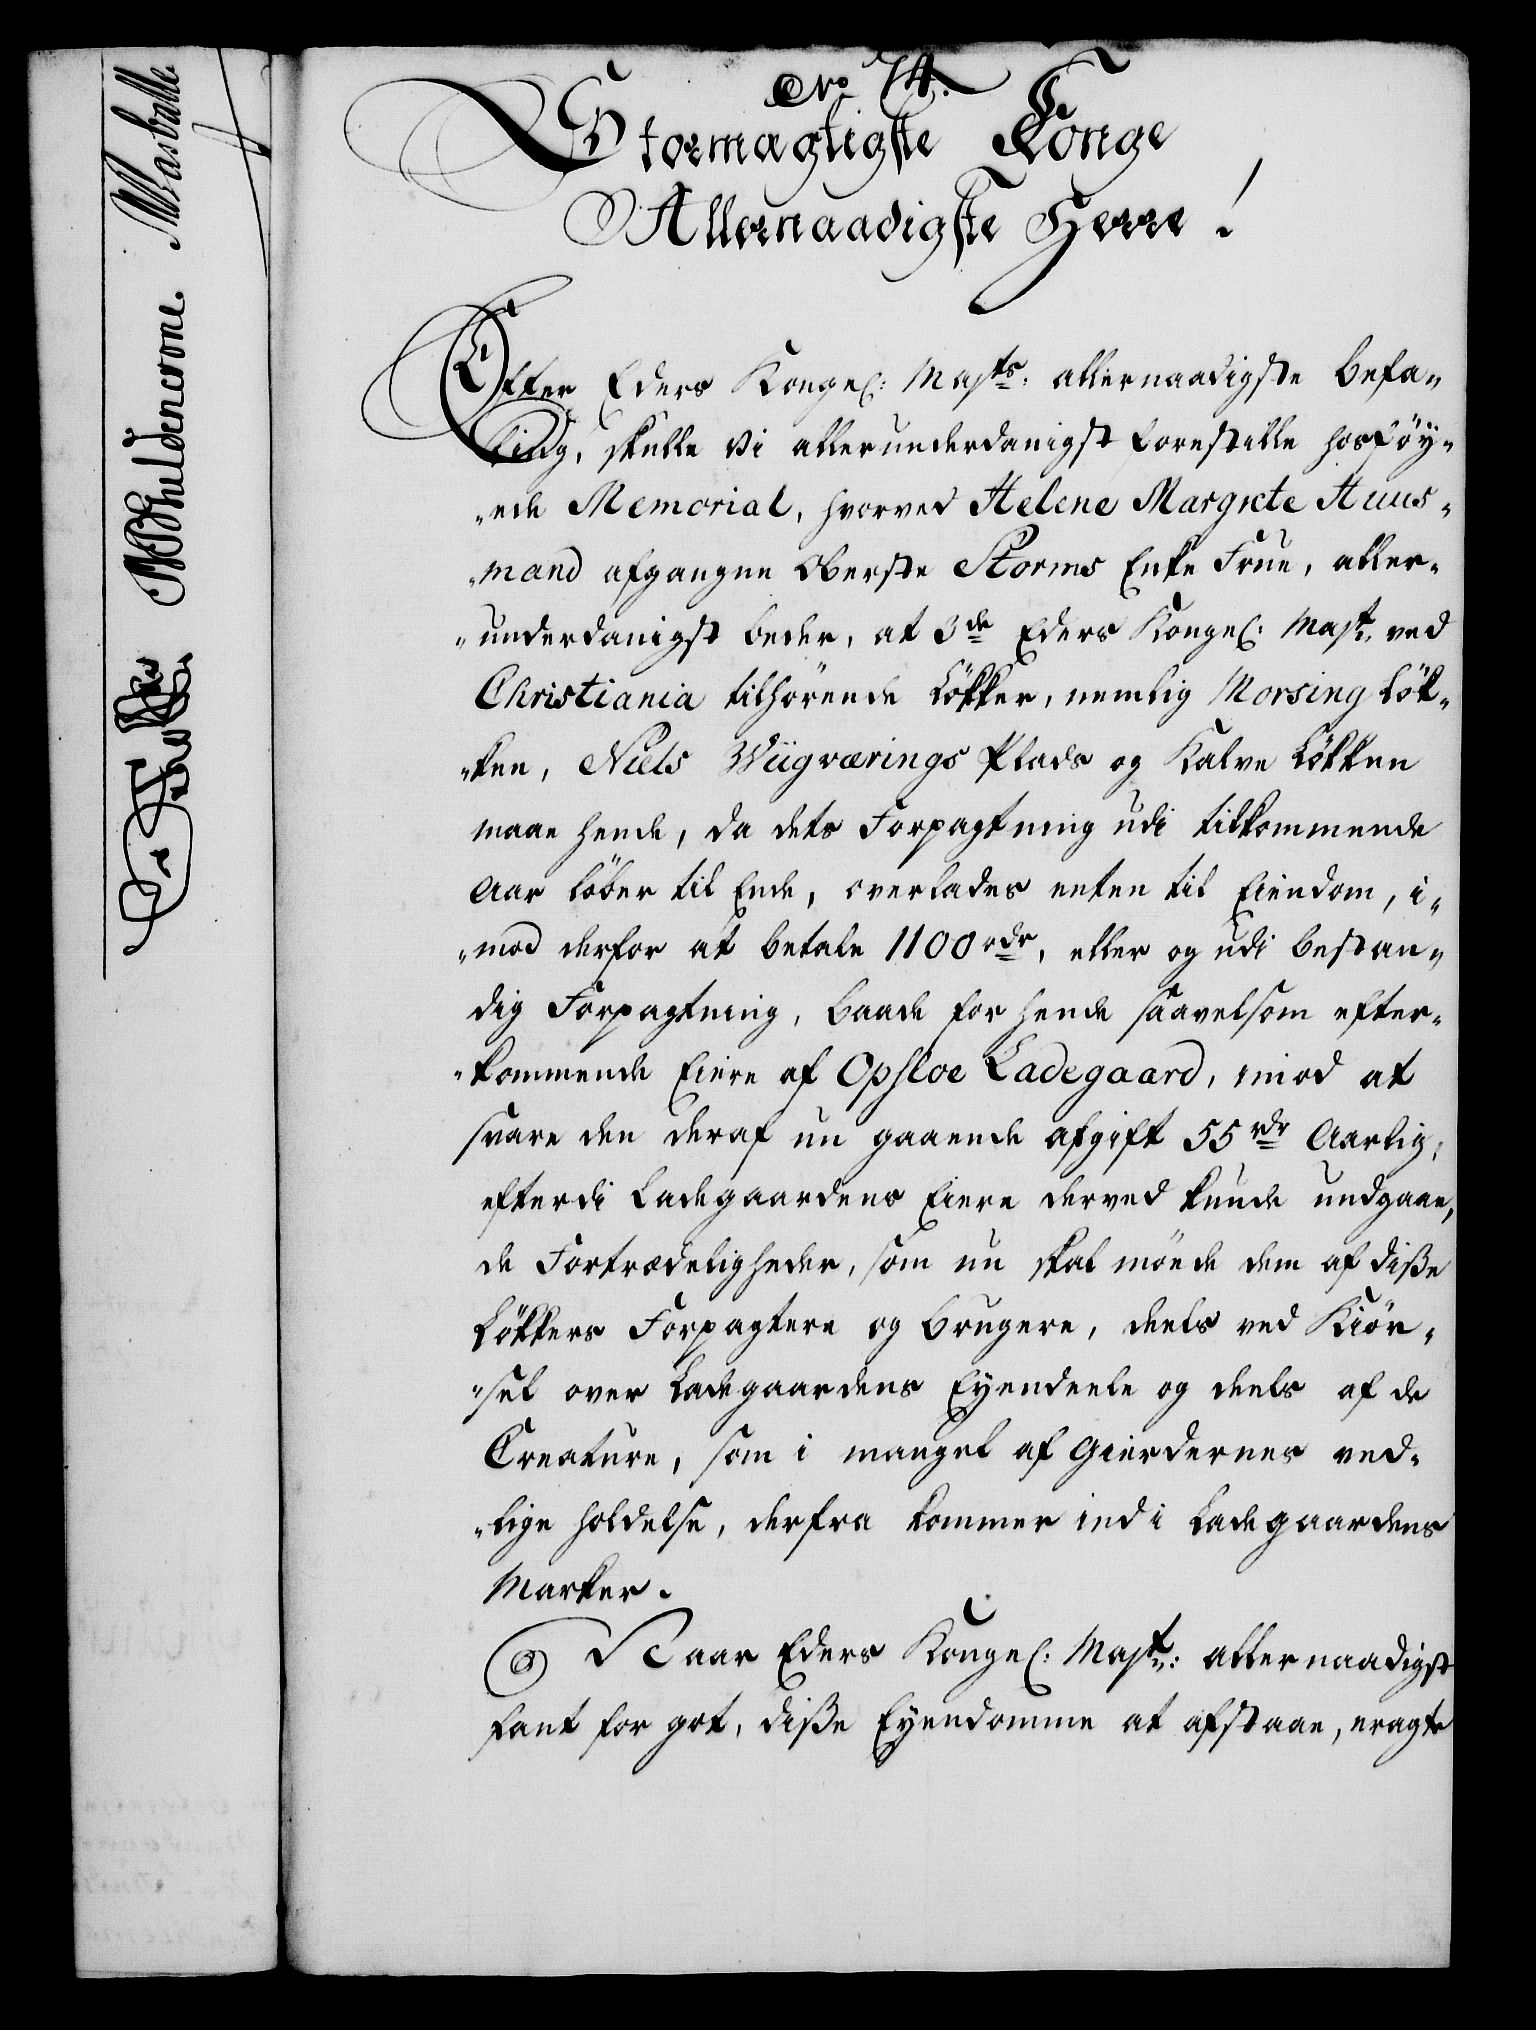 No 74.
Stormægtigste Konge
Allernaadigste Herre!
Efter Eders Kongel: Majts: allernaadigste Befa-
ling, skulle Vi allerunderdanigst forestille hosföy-
-ede Memorial, hvorved Helene Margrete Huus-
-mand afgangne Oberste Storms Enke Frue, aller-
-underdanigst beder, at 3de Eders Kongel: Majt: ved
Christiania tilhörende Lökker, nemlig Morsing Lök-
-ken, Niels Wiigværings Plads og Kalve Lökken
maae hende, da dets Forpagtning udi tilkommende
Aar löber til Ende, overlades enten til Eiendom, i-
-mod derfor at betale 1100 rdr, eller og udi bestan-
dig Forpagtning, baade for hende saavelsom efter-
-kommende Eiere af Opsloe Ladegaard, imod at
svare den deraf nu gaaende afgift 55 rdr Aarlig,
efterdi Ladegaardens Eiere derved kunde undgaae,
de Fortrædeligheder, som nu skal möede dem af diße
Lökkers Forpagtere og Brugere, deels ved Kiör-
-sel over Ladegaardens Eyendeele og deels af de
Creature, som i mangel af Gierdernes ved-
-lige holdelse, derfra kommer ind i Ladegaardens
Marker.
Naar Eders Kongel: Majt: allernaadigst
fant for got, diße Eyendomme at afstaae, eragte
Masballe
Scheldencrone.